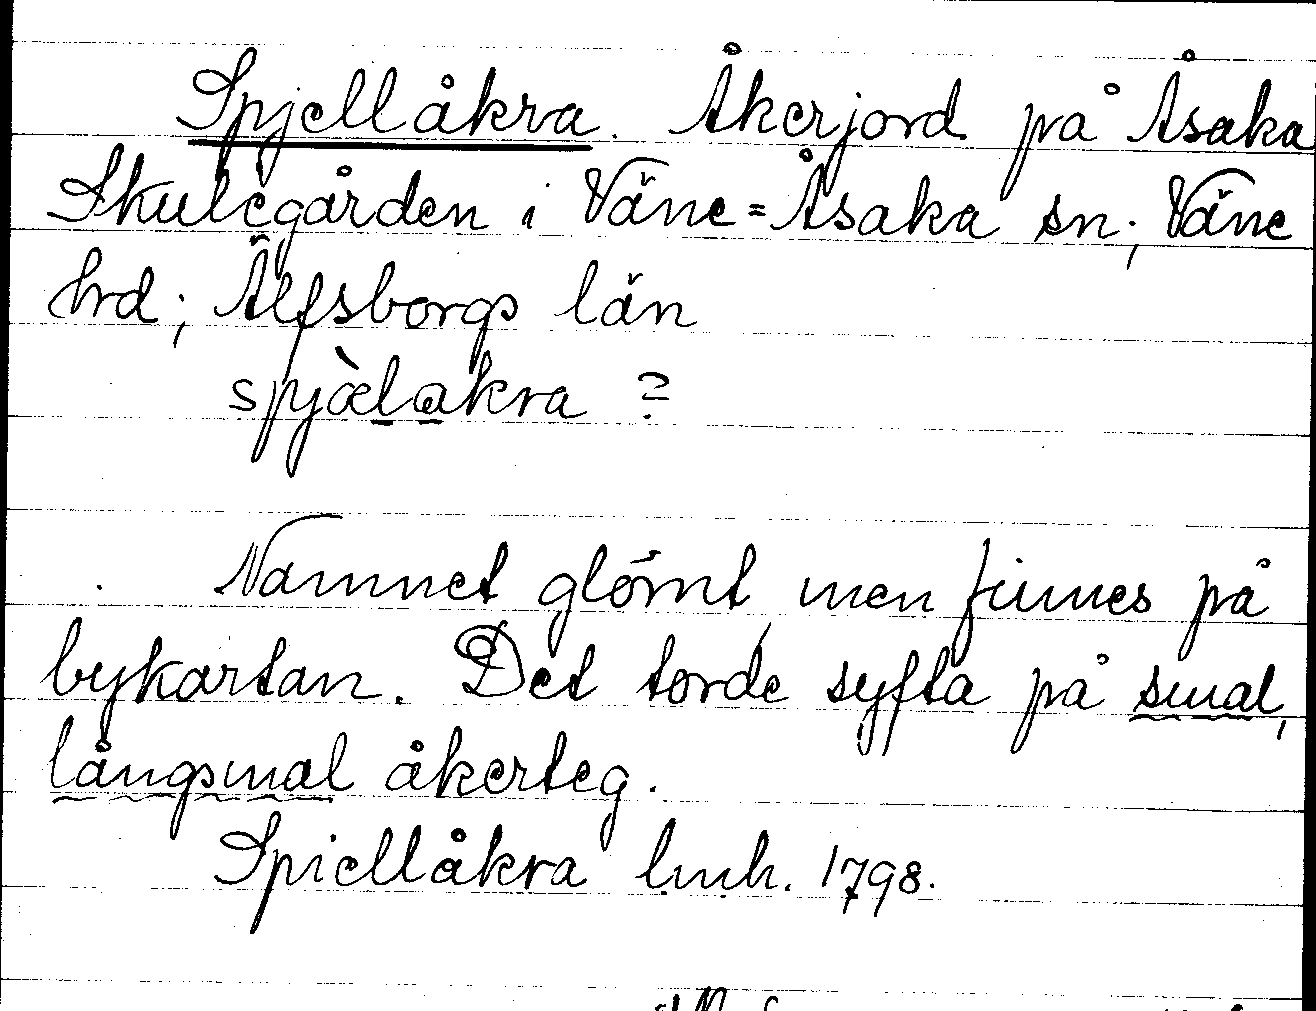 Spjellåkra. Åkerjord på Åsaka
Skulegården i Väne=Åsaka sn; Väne
hrd; Älfsborgs län
spjæ̀lakra ?
Namnet glömt, men finnes på
bykartan. Det torde syfta på smal,
långsmal åkerteg.
Spiellåkra lmh. 1798.